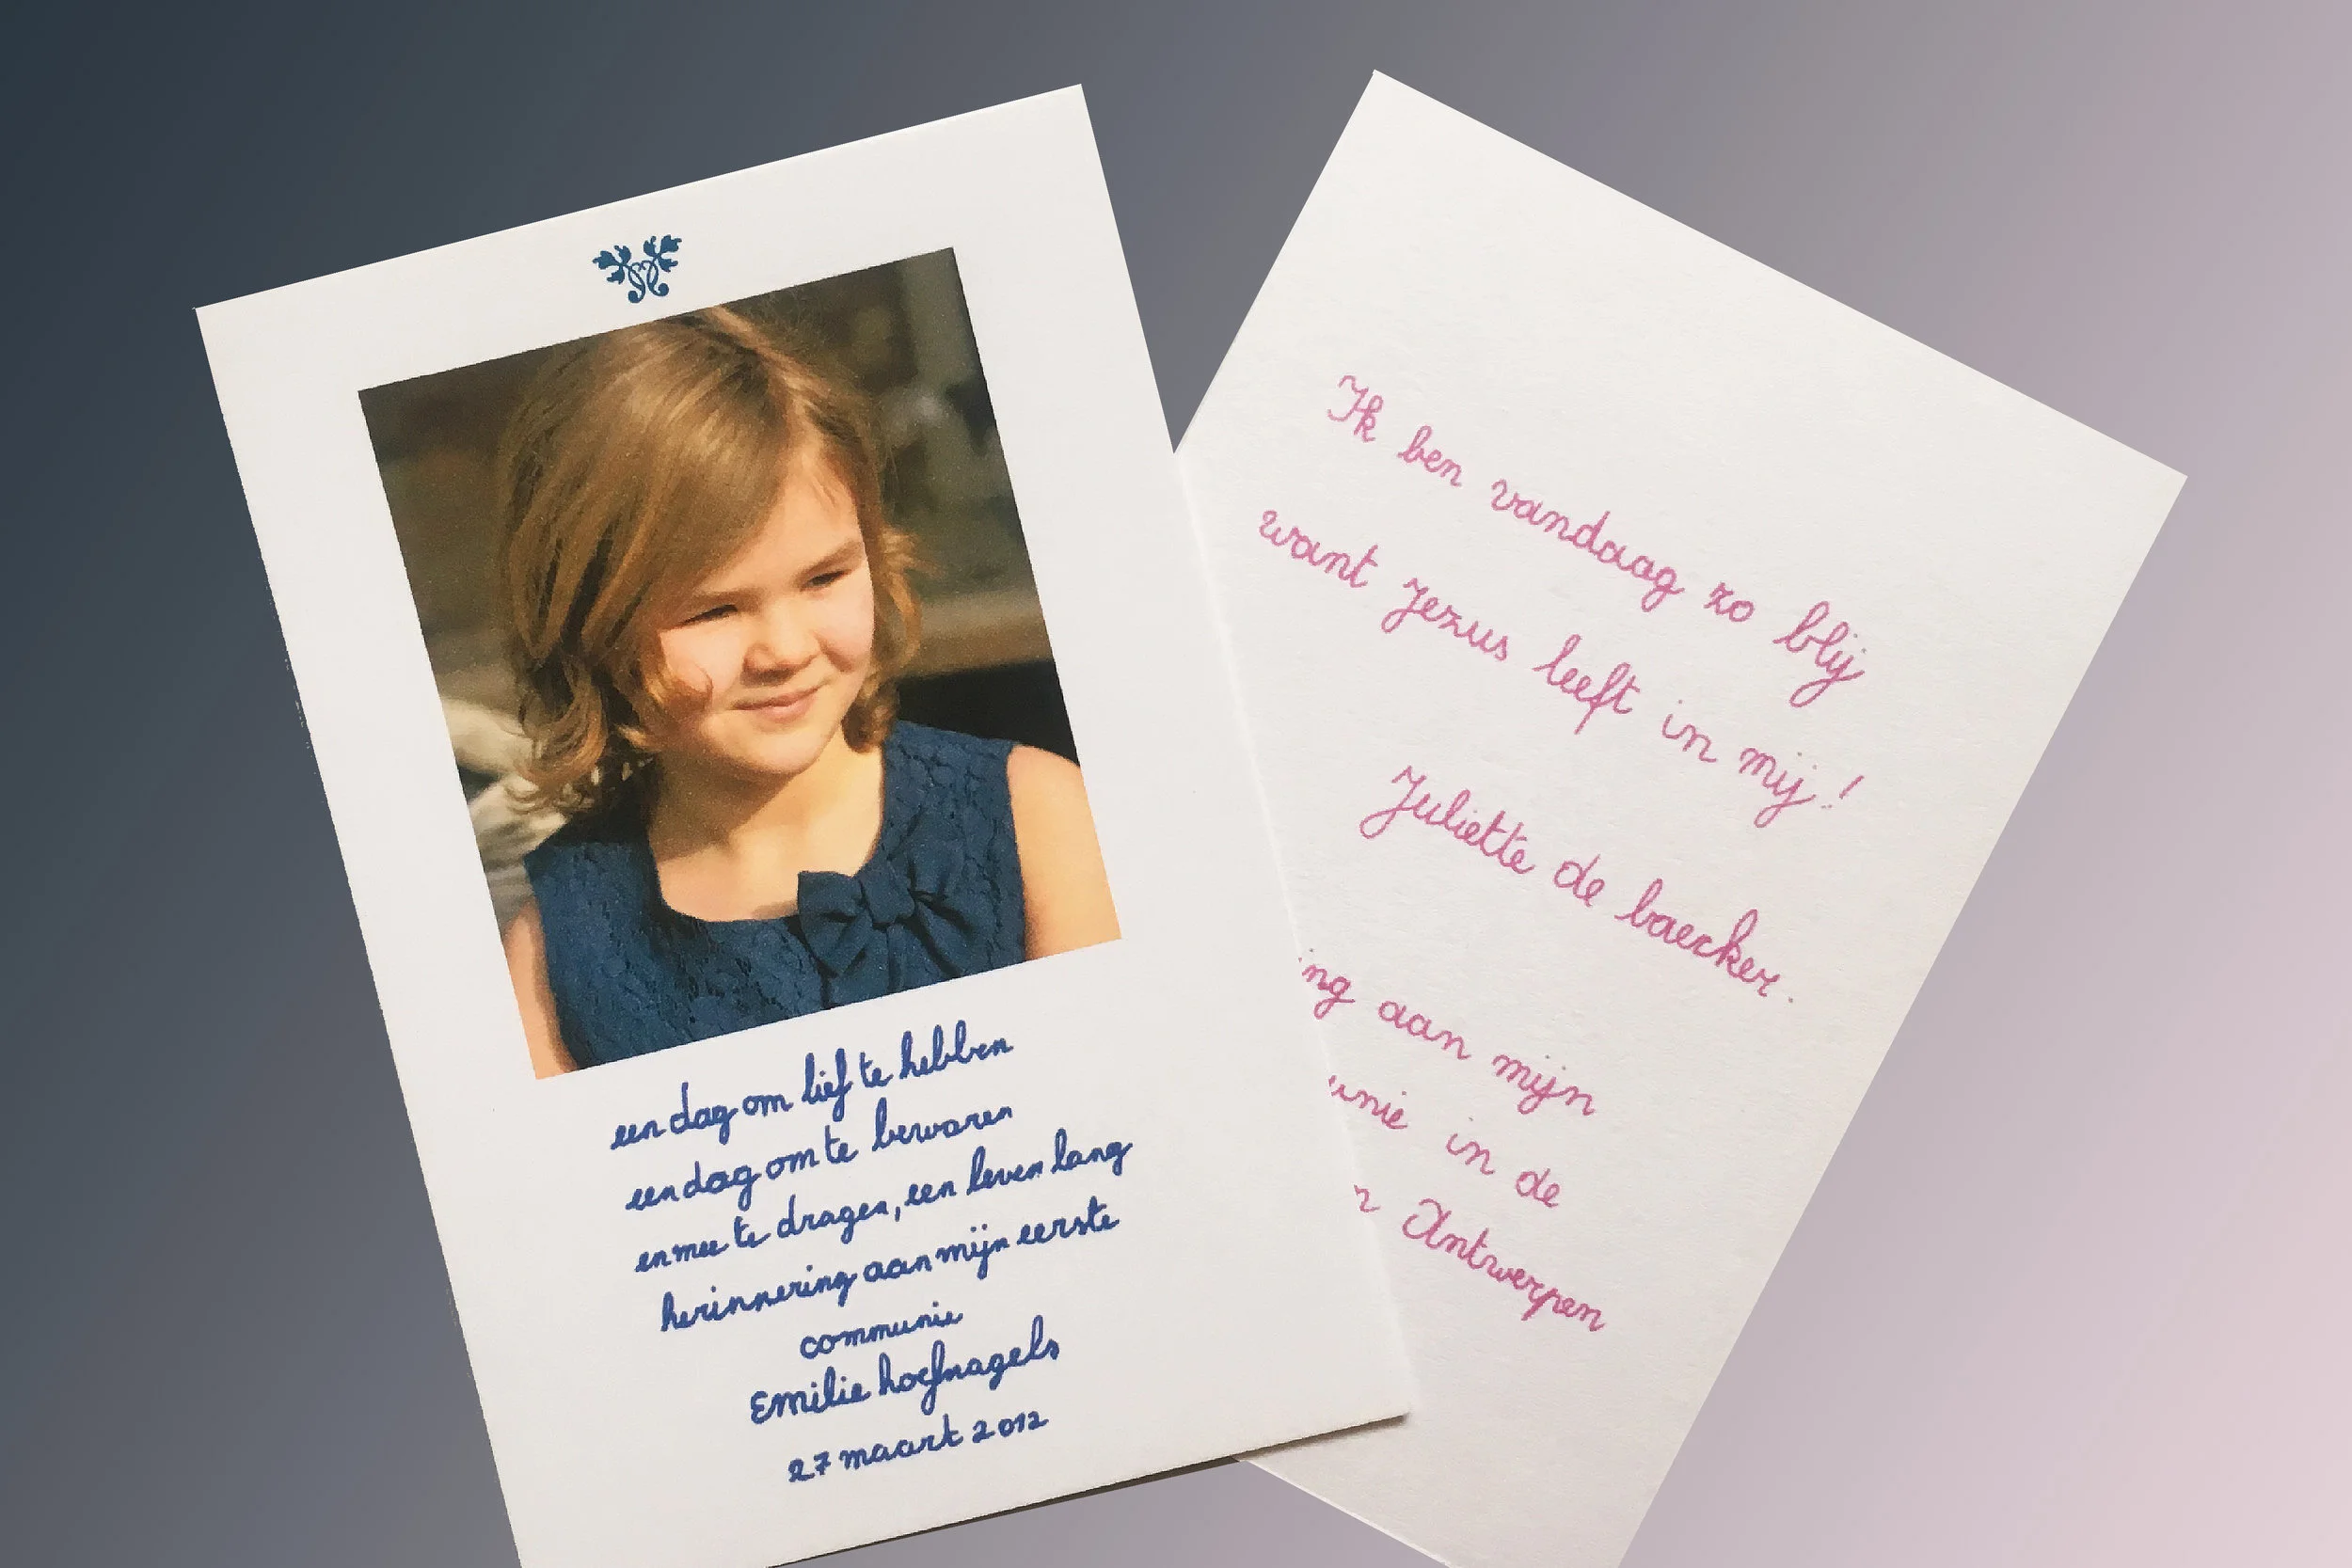 een dag om lief te hebben
een dag om te bewaren
en mee te dragen, een leven lang
herinnering aan mijn eerste
communie
Emilie hoefnagels
27 maart 2012
Ik ben vandaag zo blij
want Jezus leeft in mij!
Juliette de baecker.
ing aan mijn
unie in de
n Antwerpen